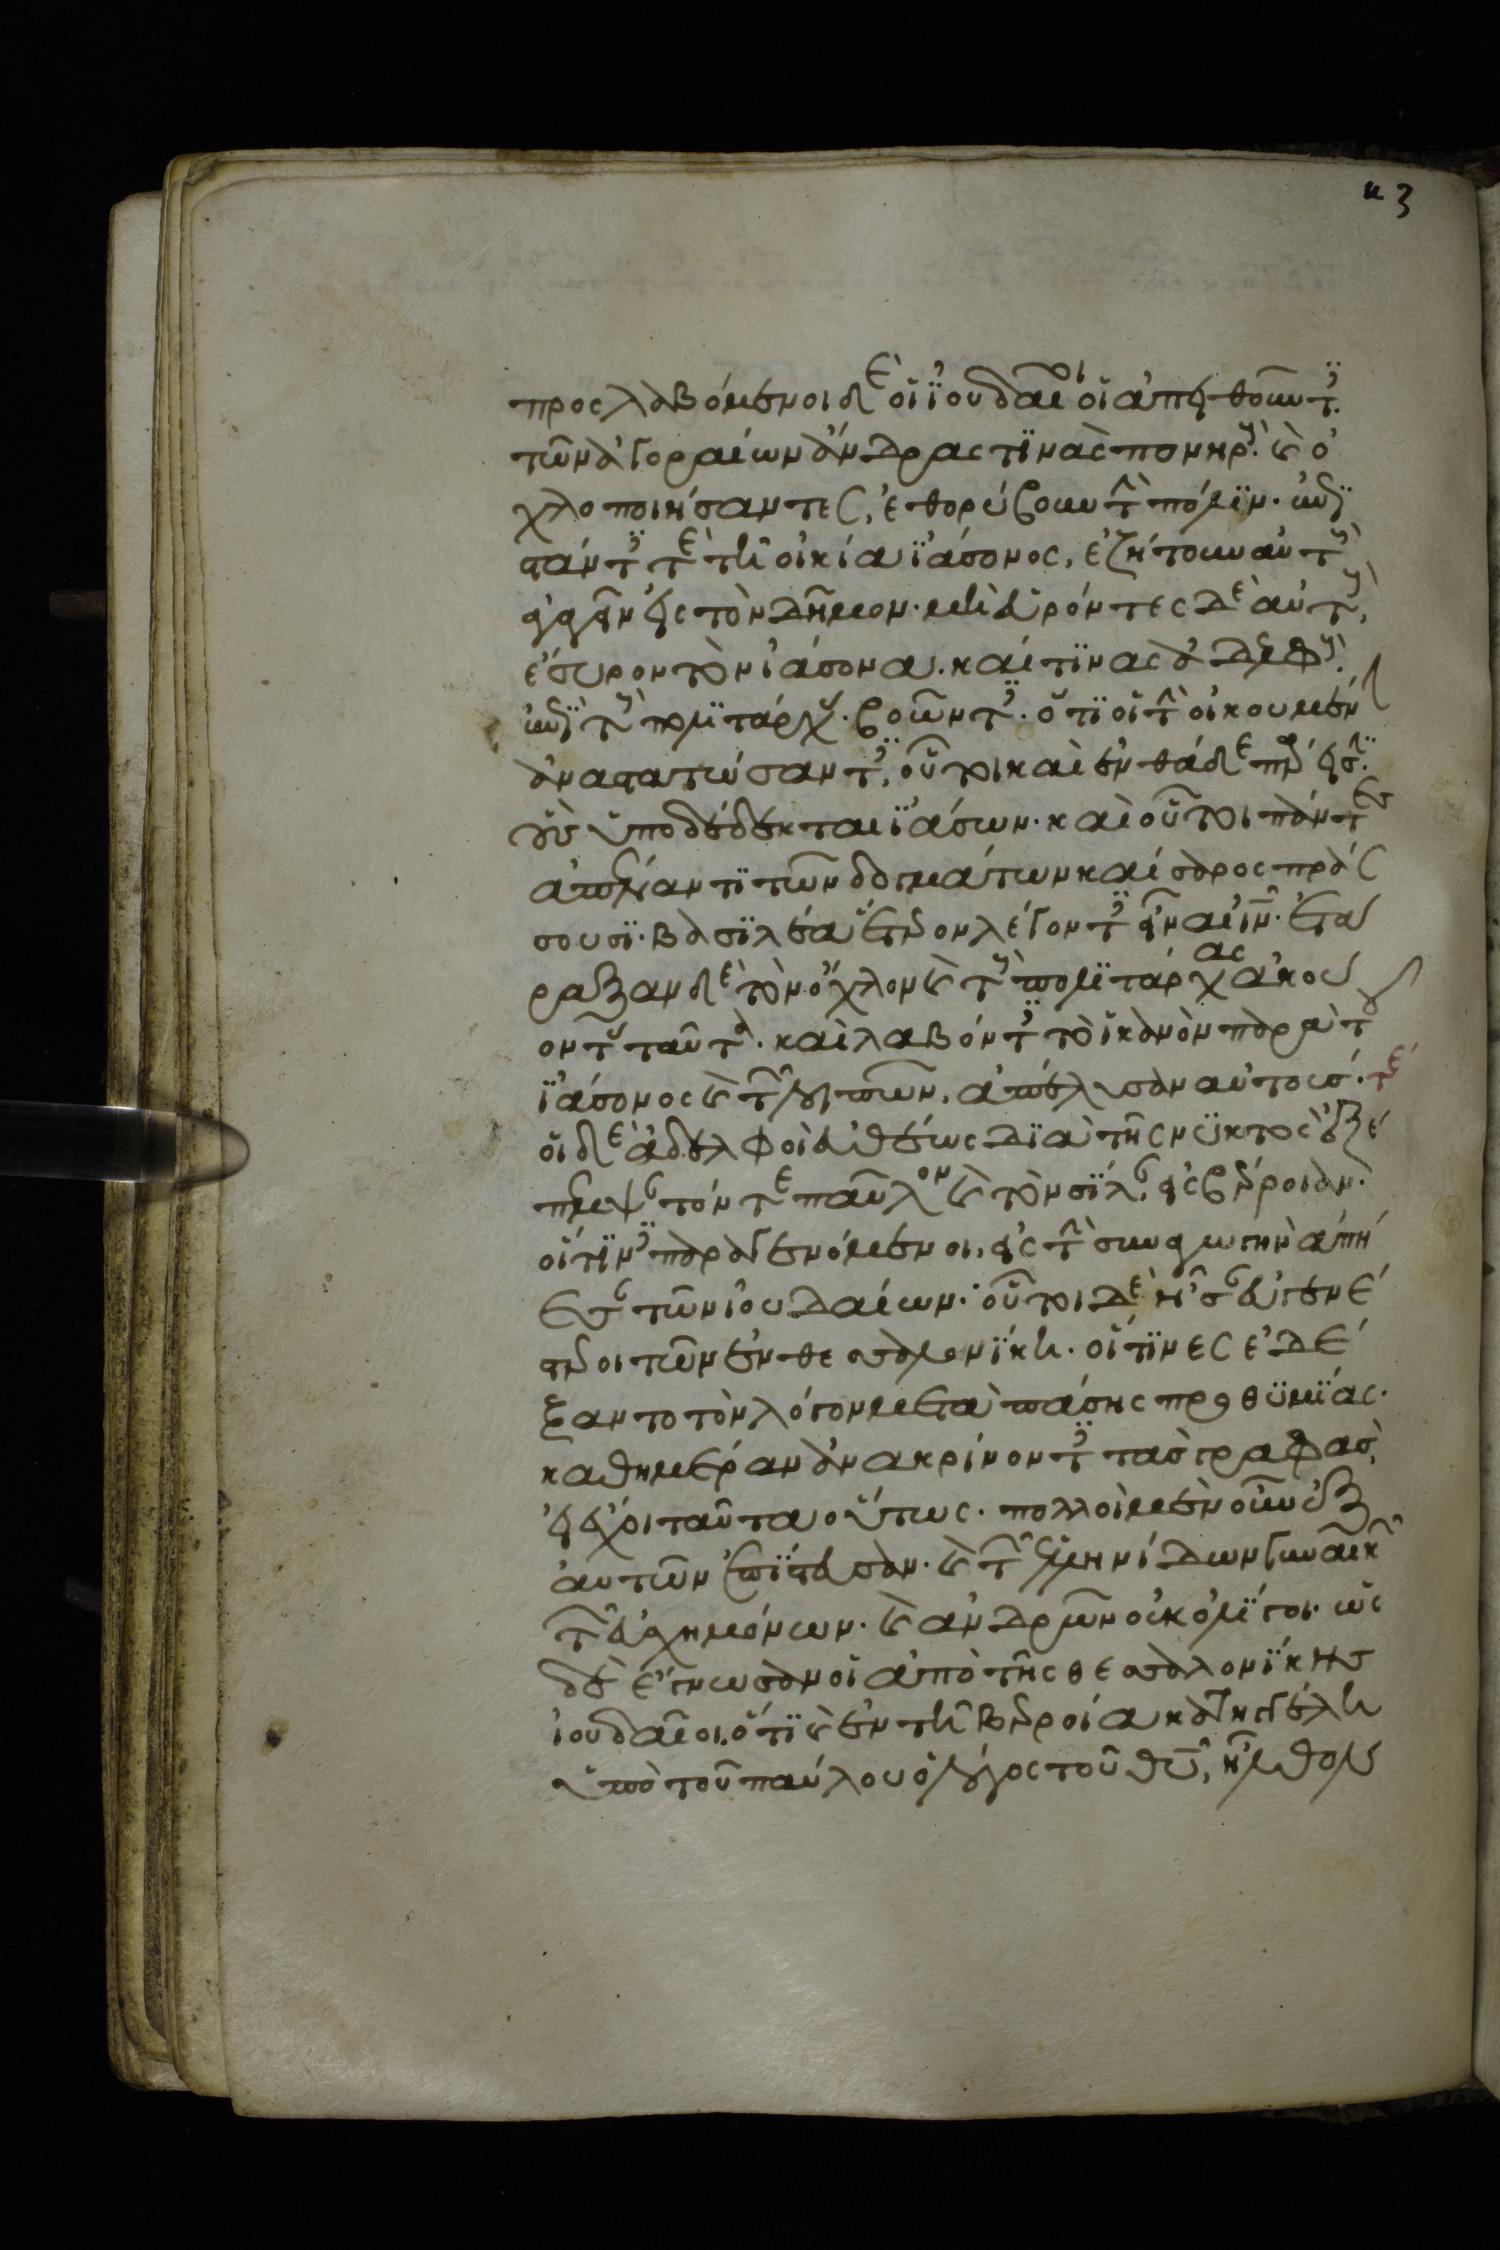 κζ
προσλαβόμενοι δὲ οἱ ἰουδαῖοι οἱ ἀπειθοῦντες
τῶν ἀγοραίων ἄνδρας τινὰς πονηρούς καὶ ὀ
χλοποιήσαντες, ἐθορύβουν τὴν πόλιν· ἐπι
στάντες τὲ τῆ οἰκία ϊάσονος, ἐζήτουν αὐτοὺς
ἀγαγεῖν εἰς τὸν δῆμον· μὴ εὑρόντες δὲ αὐτοὺς,
ἔσυρον τὸν ἰάσονα· καί τινας ἀδελφοὺς
ἐπὶ τοὺς πολιτάρχας· βοῶντες· ὅτι οἱ τὴν οἰκουμένην
ἀναστατώσαντες, οὗτοι καὶ ἐνθάδε πάρεισιν·
οὓς ὑποδέδεκται ϊάσων· καὶ οὗτοι πάντες
ἀπέναντι τῶν δογμάτων καίσαρος πράσ
σουσι· βασιλέα ἕτερον λέγοντες εἶναι ἰησοῦν· ἐτά
ραξαν δὲ τὸν ὄχλον καὶ τοὺς πολιτάρχας ἀκού
οντας ταῦτα· καὶ λαβόντες τὸ ἱκανὸν παρὰ τοῦ
ϊάσονος καὶ τῶν λοιπῶν, ἀπέλυσαν αὐτούς· τε
οἱ δὲ ἀδελφοὶ εὐθέως διὰ τῆς νυκτὸς ἐξέ
πεμψαν τόν τε παῦλον καὶ τὸν σίλαν εἰς βέροιαν·
οἵτινες παραγενόμενοι, εἰς τὴν συναγωγὴν ἀπή
εσαν τῶν ἰουδαίων· οὗτοι δὲ ἦσαν εὐγενέ
στεροι τῶν ἐν θεσσαλονίκη· οἵτινες ἐδέ
ξαντο τὸν λόγον μετὰ πάσης προθυμίας·
καθημέραν ἀνακρίνοντες τὰς γραφὰς,
εἰ ἔχοι ταῦτα οὕτως· πολλοὶ μὲν οὖν ἐξ
αὐτῶν ἐπίστευσαν· καὶ τῶν ἑλληνίδων γυναικῶν
τῶν εὐσχημόνων· καὶ ἀνδρῶν οὐκ ὀλίγοι· ὡς
δὲ ἔγνωσαν οἱ ἀπὸ τῆς θεσσαλονίκης
ἰουδαῖοι, ὅτι καὶ ἐν τῆ βεροία κατηγγέλη
ὑπὸ τοῦ παύλου ὁ λόγος τοῦ θυ, ἦλθον